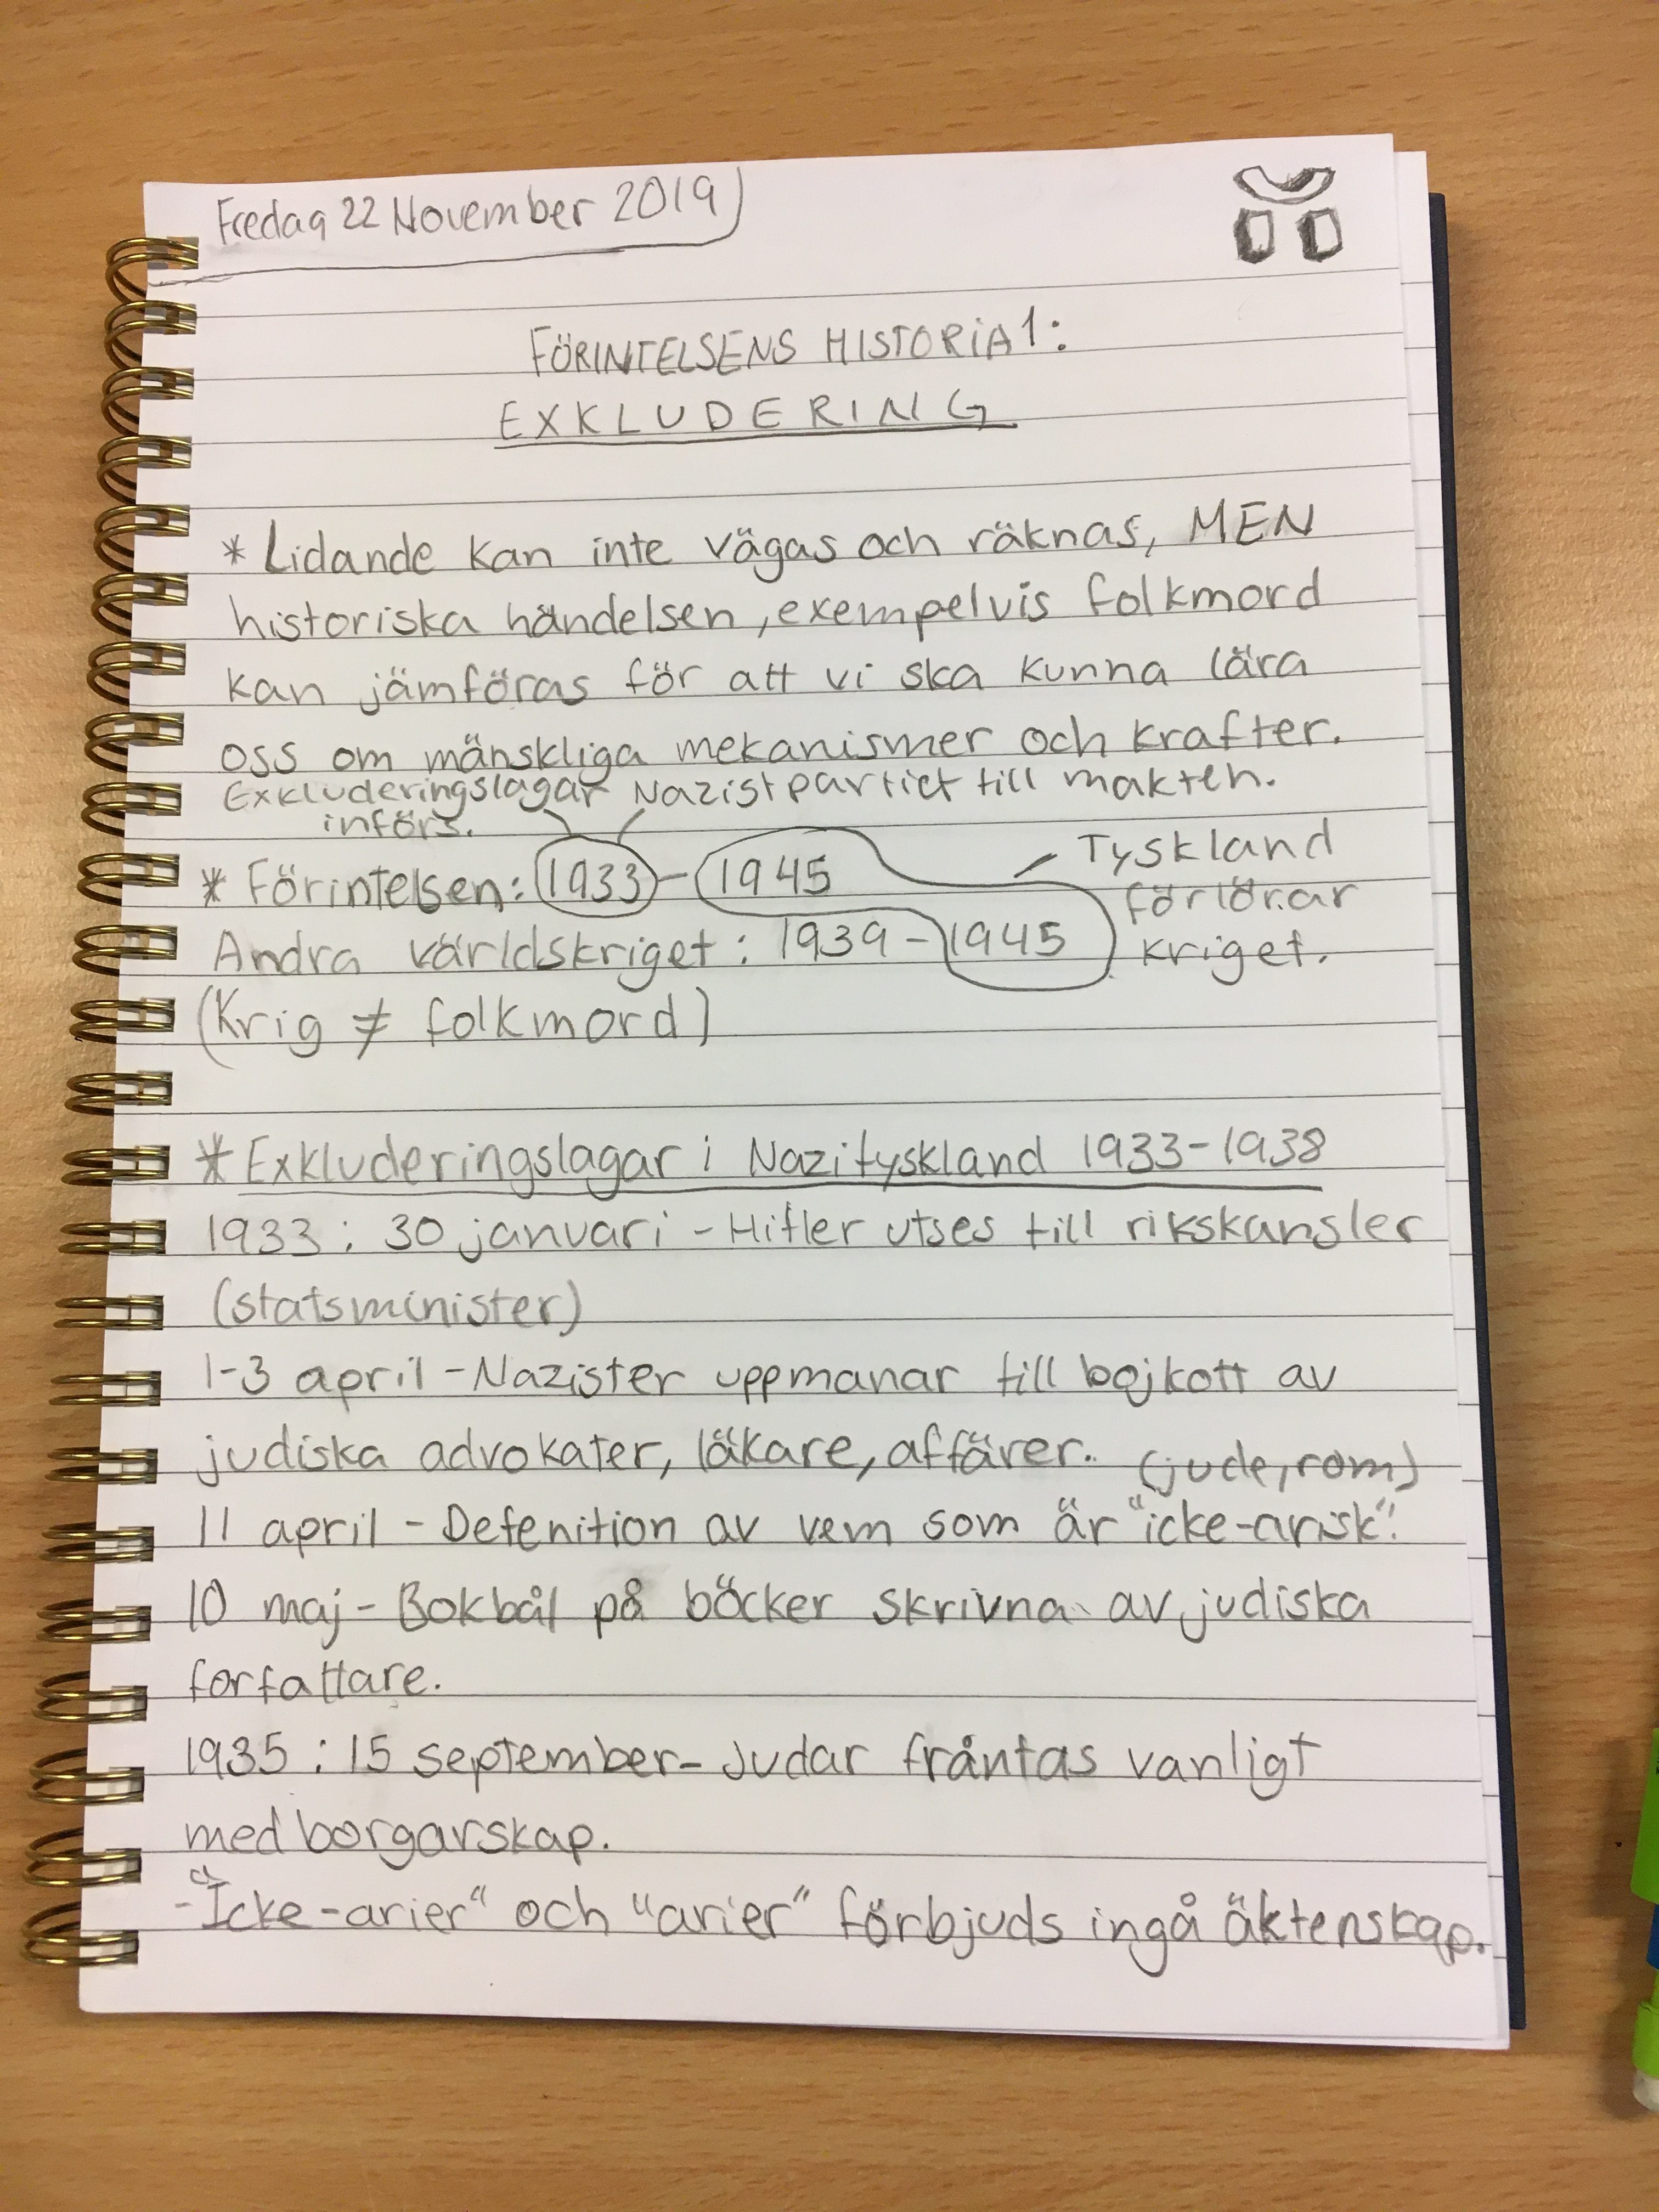 Fredag 22 November 2019
FÖRINTELSENS HISTORIA 1:
EXKLUDERING
* Lidande kan inte vägas och räknas, MEN
historiska händelsen, exempelvis folkmord
kan jämföras för att vi ska kunna lära
oss om mänskliga mekanismer och krafter.
Exkluderingslagar Nazistpartiet till makten.
införs.
* Förintelsen: 1933 - 1945 Tyskland
förlorar
Andra världskriget: 1939 - 1945 kriget.
(Krig ≠ folkmord)
* Exkluderingslagar i Nazityskland 1933-1938
1933: 30 januari - Hitler utses till rikskansler
(statsminister)
1-3 april - Nazister uppmanar till bojkott av
judiska advokater, läkare, affärer. (jude, rom)
11 april - Defenition av vem som är "icke-arisk".
10 maj - Bokbål på böcker skrivna av judiska
forfattare.
1935: 15 september - Judar fråntas vanligt
medborgarskap.
- "Icke-arier" och "arier" förbjuds ingå äktenskap.